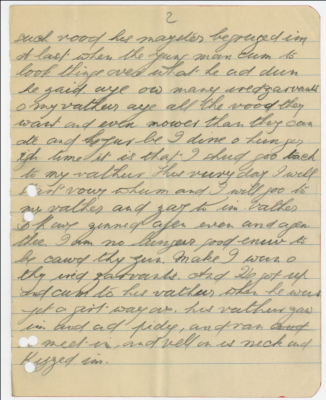 2
such vood his mayster begruged im
At last when the yung man cum to
look thingo over what he ad dun
he zaid aye ow many ired zarvants
o my vathers aye all the vood they
want and even mower than they can
ate and be I dine o hunger
time it is that I shud goo back
to my vathur this very day I will
vor whum and I will goo to
my vather and zay to im Vather
I have zinned agen even and agen
thee I am no lunger good enuv to
be cawd thy zun. Make I wun o
thy ired zarvants. And he got up
and cum to his vathur when he wur
yet a girt way ov. his vathur zaw
im and ad pidy, and ran and
meet im, and vell on is neck and
kizzed im.